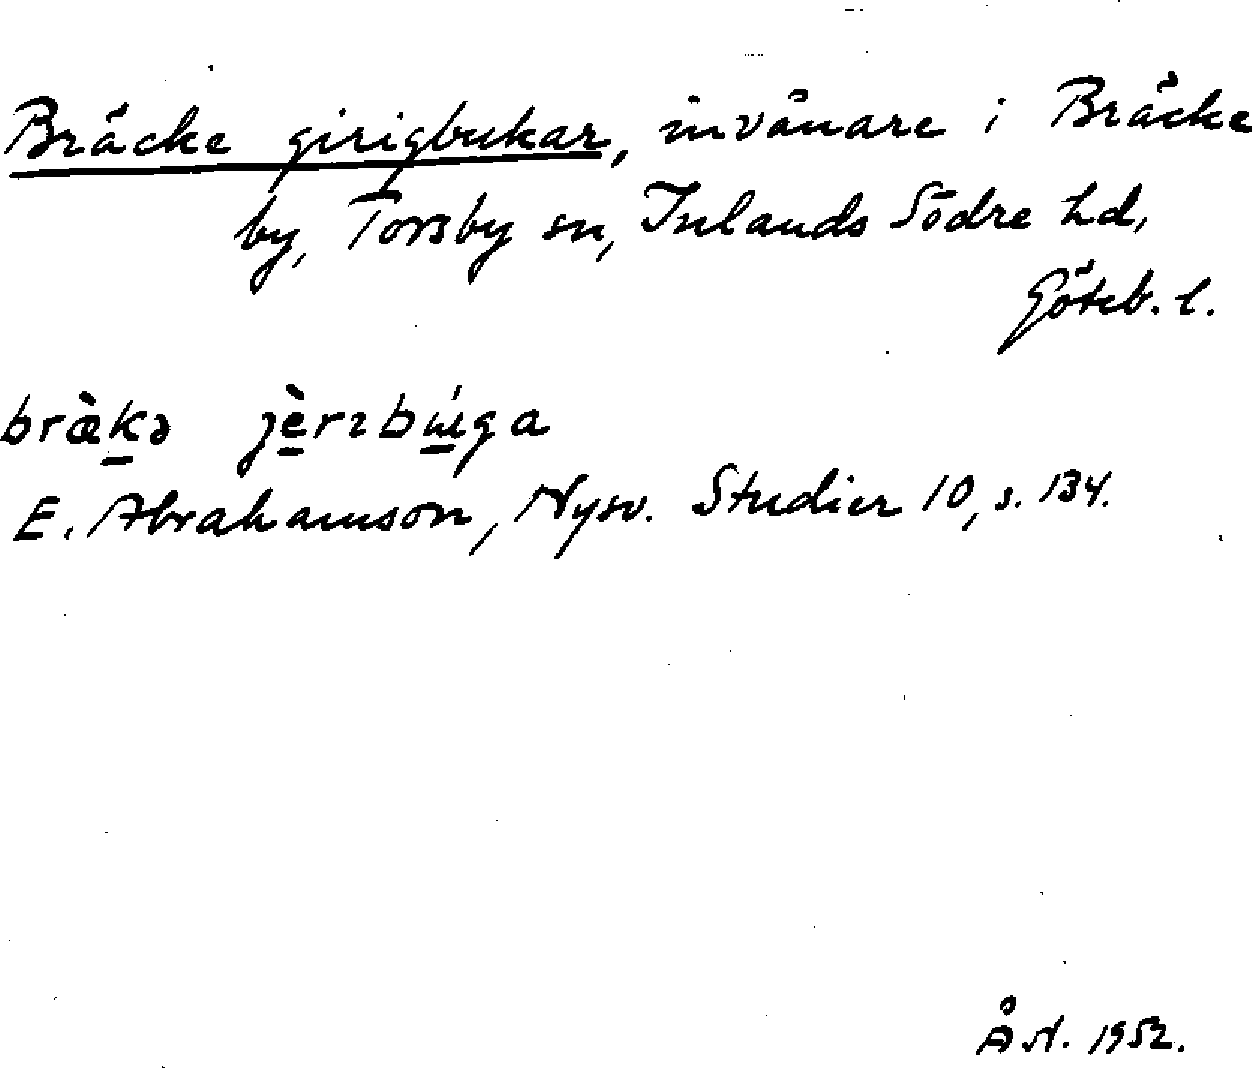 Bräcke girigbukar, invånare i Bräcke
by, Torsby sn, Inlands Södre hd,
Göteb. l.
bræ̀kə jèrɪbɯ́ga
E. Abrahamson, Nysv. Studier 10, s. 134.
ÅN. 1952.